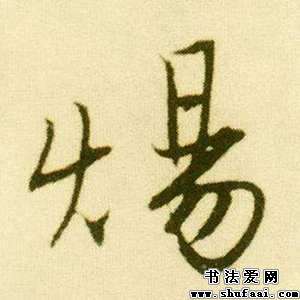 煬
书法爱网
www.shufaai.com